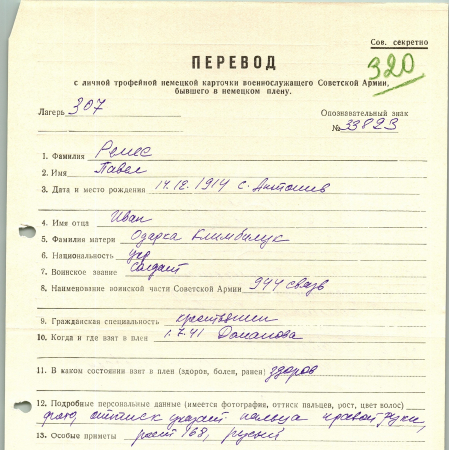 Сов. секретно
ПЕРЕВОД
320
с личной трофейной немецкой карточки военнослужащего Советской Армии,
бывшего в немецком плену.
Лагерь 307
Опознавательный знак
№ 33823
1. Фамилия Ремес
2. Имя Павел
3. Дата и место рождения 14.12.1914 с. Антонив
4. Имя отца Иван
5. Фамилия матери Одарка Климбилук
6. Национальность укр
7. Воинское звание солдат
8. Наименование воинской части Советской Армии 944 связь
9. Гражданская специальность крестьянин
10. Когда и где взят в плен 1.7.41 Доманова
11. В каком состоянии взят в плен (здоров, болен, ранен) здоров
12. Подробные персональные данные (имеется фотография, оттиск пальцев, рост, цвет волос)
фото, оттиск указат. пальца правой руки,
13. Особые приметы рост 168, русый